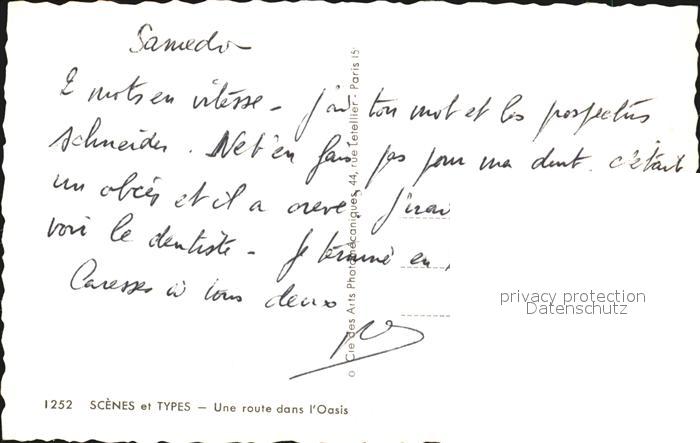 Samedi
2 mots en vitesse - j'ai ton mot et les prospectus
Schneider. Ne t'en fais pas pour ma dent. c'était
un abcès et il a crevé. J'irai
voir le dentiste - Je termine en
Caresses à tous deux
© Cie des Arts Photomécaniques, 44, rue Letellier - Paris 15
privacy protection
Datenschutz
1252 SCÈNES et TYPES — Une route dans l'Oasis